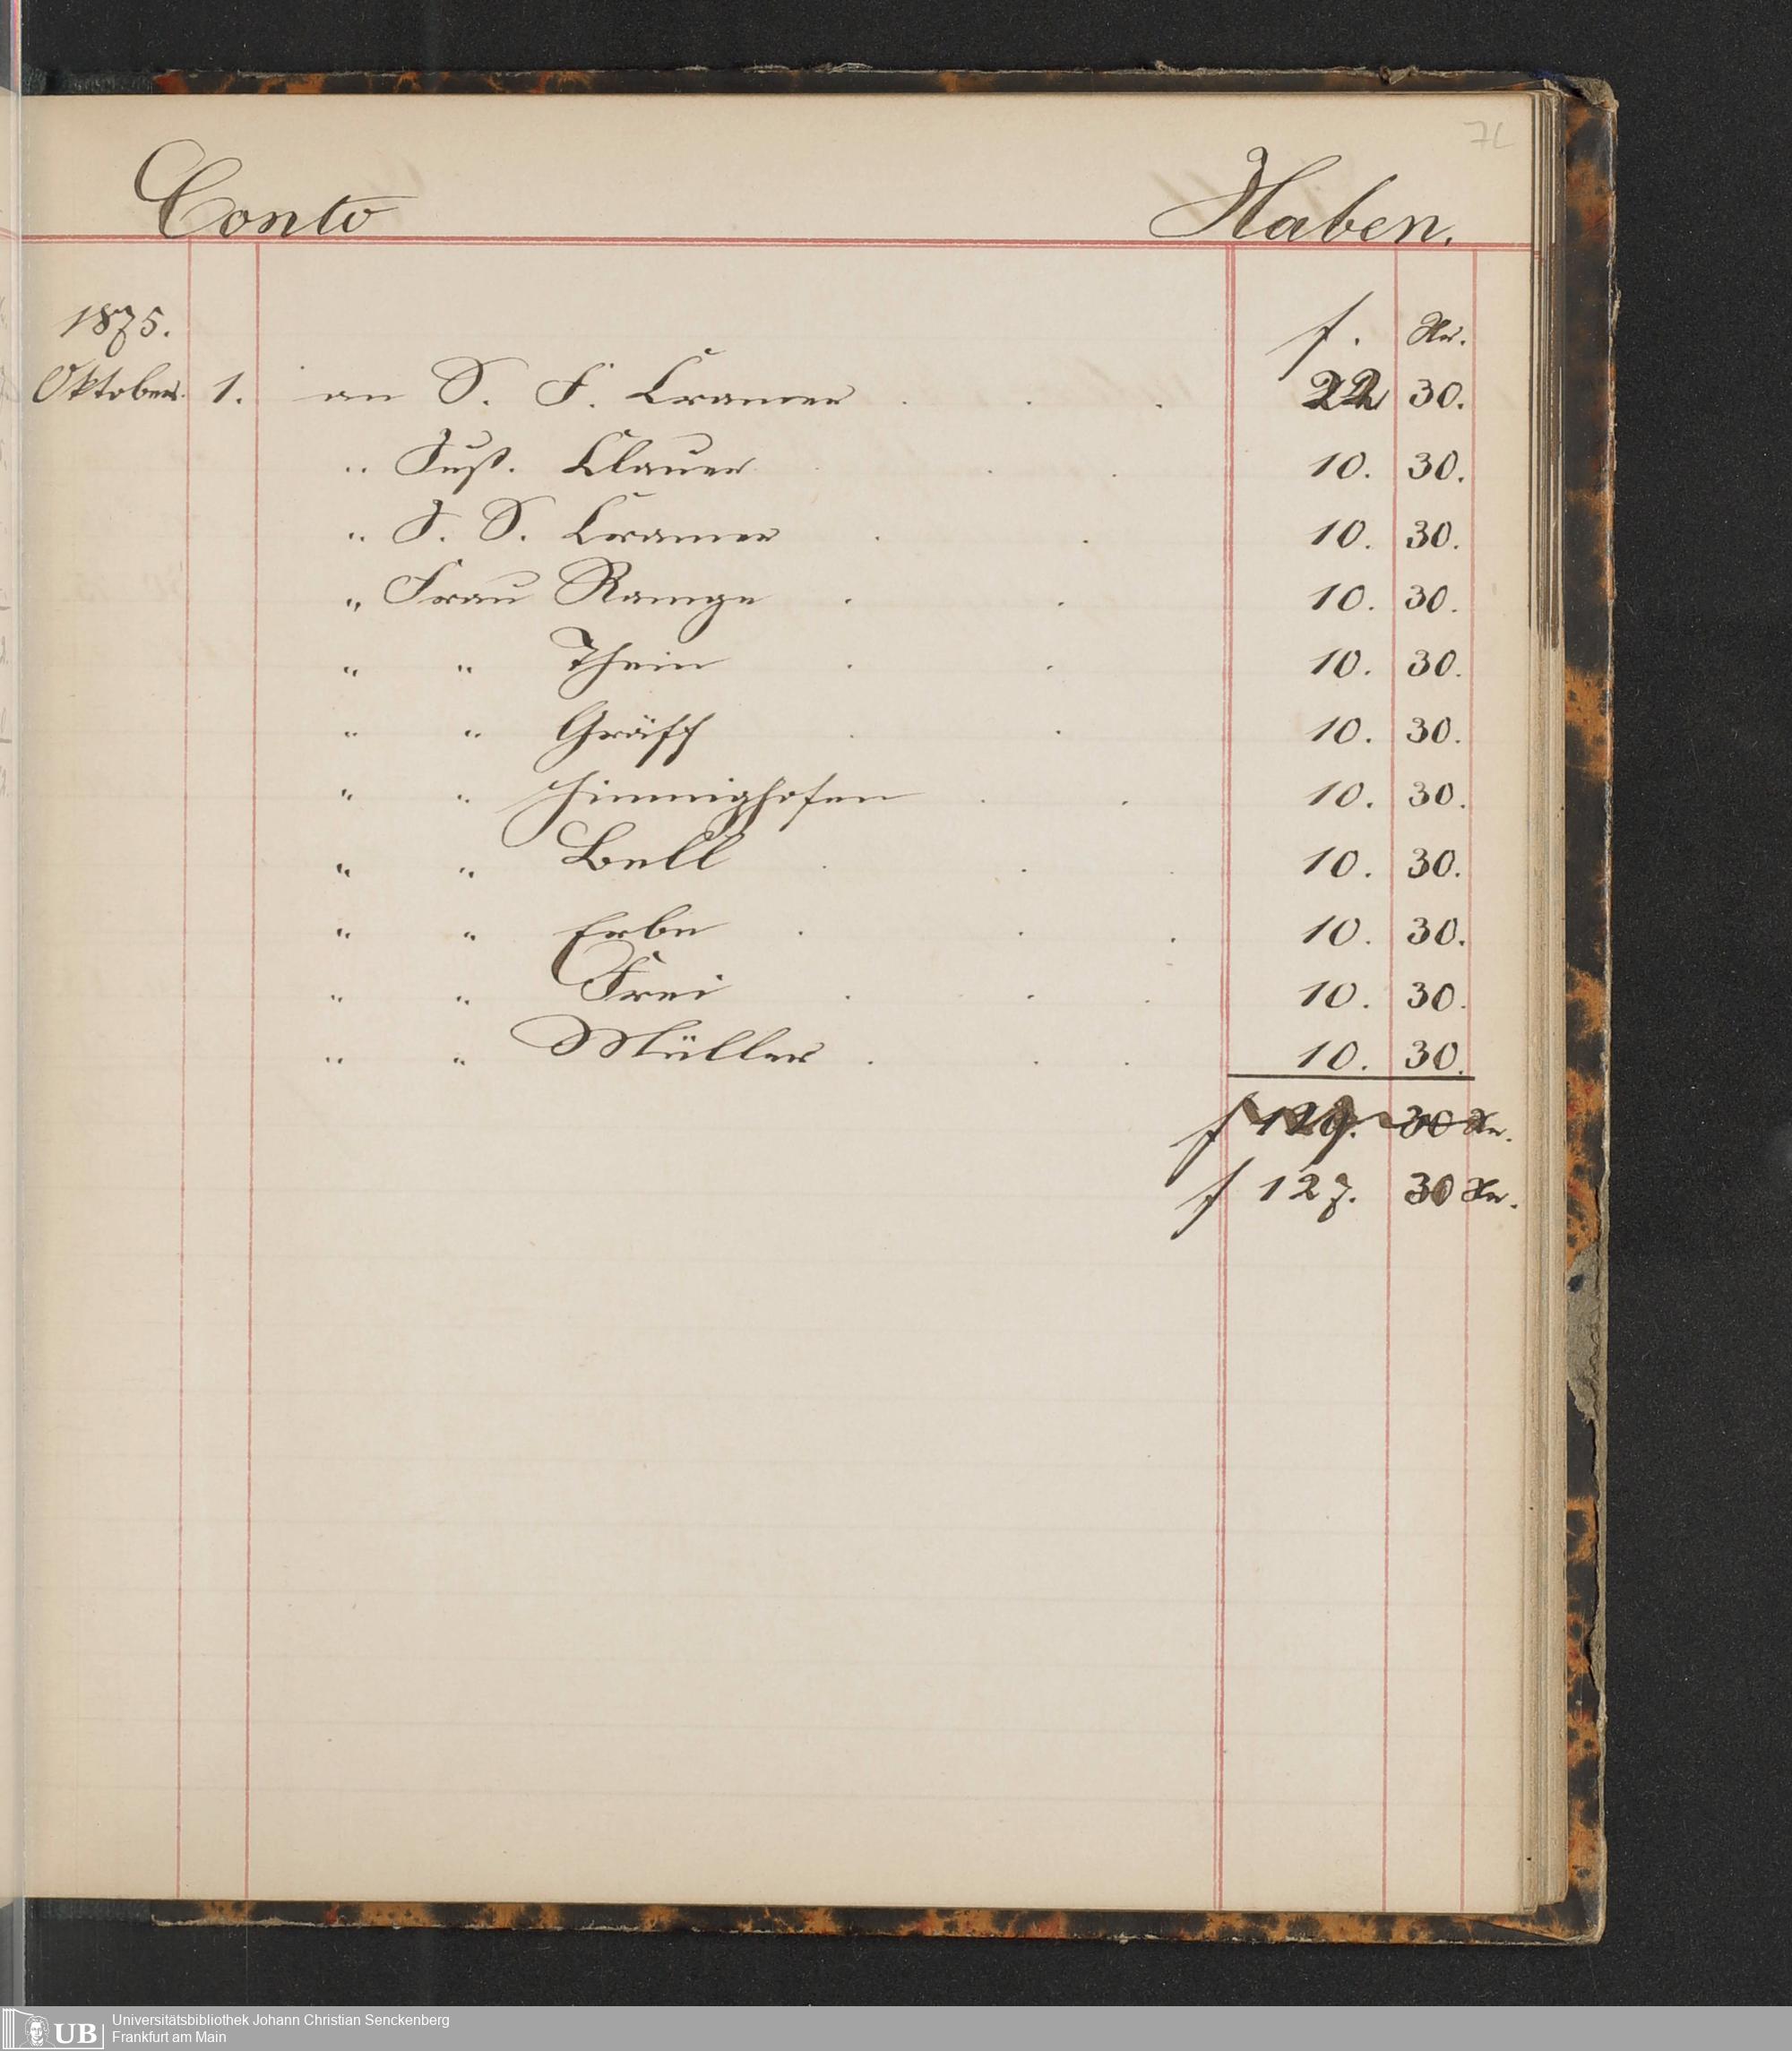 71
Conto Haben.
1875. f. Xr.
Oktober. 1. an S. F. Cramer . . . 22 30.
" Just. Clauer . . . 10. 30.
" J. S. Cramer . . 10. 30.
" Frau Ramge . . 10. 30.
" " Thein . . 10. 30.
" " Gräff . . 10. 30.
" " Himmighofen . . 10. 30.
" " Bell . . . 10. 30.
" " Erbe . . . 10. 30.
" " Frei . . . 10. 30.
" " Müller . . . 10. 30.
f 129. 30 Xr.
f 127. 30 Xr.
UB Universitätsbibliothek Johann Christian Senckenberg
Frankfurt am Main